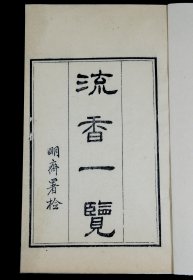 流香一覽
明齋署檢